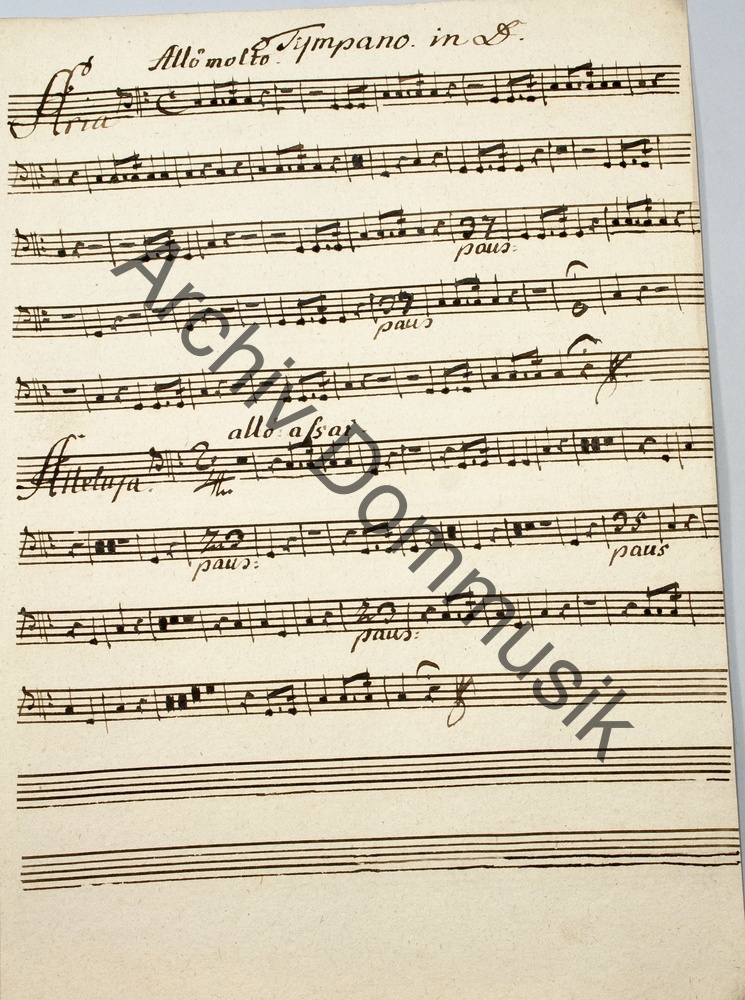 Tympano. in D.
Allo molto.
Aria
37
paus:
paus
allo assai
Alleluja.
paus:
35
paus
paus:
Archiv Dommusik